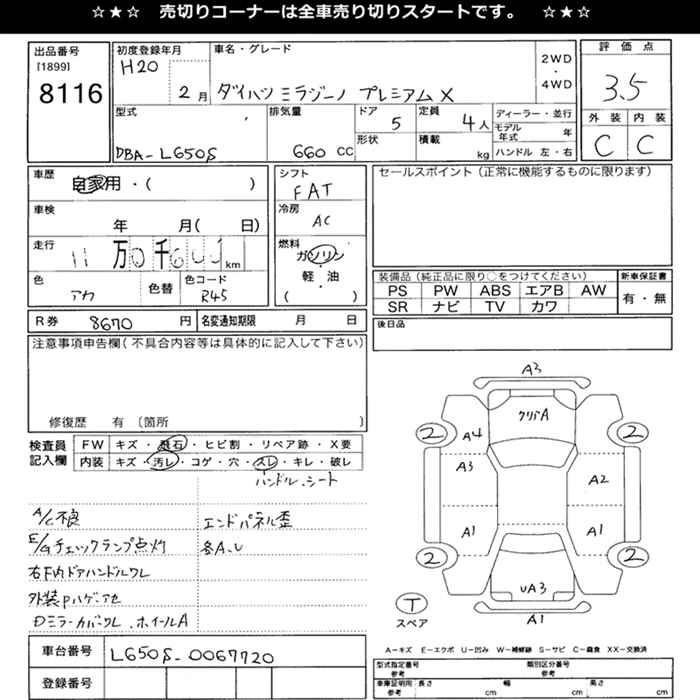 ☆★☆ 売切りコーナーは全車売り切りスタートです。 ☆★☆
出品番号
[1899]
8116
初度登録年月
H20
2月
車名・グレード
ダイハツ ミラジーノ プレミアムX
2WD
・
4WD
評価点
3.5
外装 内装
C C
型式
DBA-L650S
排気量
660 CC
ドア
5
形状
定員
4人
積載
kg
ディーラー・並行
モデル年式 年
ハンドル 左・右
車歴
自家用・( )
車検
年 月( 日)
走行
11万0千600 km
色
アカ
色替
色コード
R45
シフト
FAT
冷房
AC
燃料
ガソリン
・
軽・油
( )
セールスポイント(正常に機能するものに限ります)
装備品(純正品に限り○をつけてください)
PS PW ABS エアB AW
SR ナビ TV カワ
新車保証書
有・無
R券 8670 円
名変通知期限 月 日
後日品
注意事項申告欄(不具合内容等は具体的に記入して下さい)
修復歴 有〔箇所 〕
検査員
記入欄
FW キズ・飛石・ヒビ割・リペア跡・X要
内装 キズ・汚レ・コゲ・穴・スレ・キレ・破レ
ハンドル.シート
A/C不良
エンドパネル歪
E/Gチェックランプ点灯
各A.U
右F内ドアハンドルワレ
外装Pハゲ.アセ
Dミラーカバーワレ.ホイールA
車台番号 L650S-0067720
登録番号
A3
クリアA
2 2
A4
A3 A2
A1 A1
2 2
UA3
A1
T
スペア
A-キズ E-エクボ U-凹み W-補修跡 S-サビ C-腐食 XX-交換済
型式指定番号
参考
類別区分番号
参考
車庫証明用
参考
長さ cm
幅 cm
高さ cm